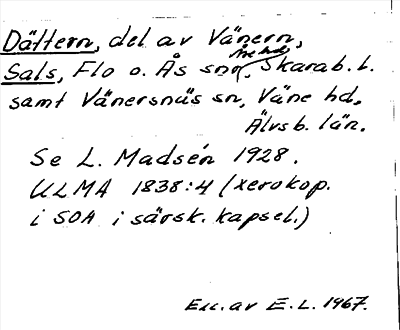 Dättern, del av Vänern,
Sals, Flo o. Ås snr, Åse hd, Skarab. l.
samt Vänersnäs sn, Väne hd,
Älvsb. län.
Se L. Madsén 1928.
ULMA 1838:4 (xerokop.
i SOA i särsk. kapsel.)
Exc. av E.L. 1967.